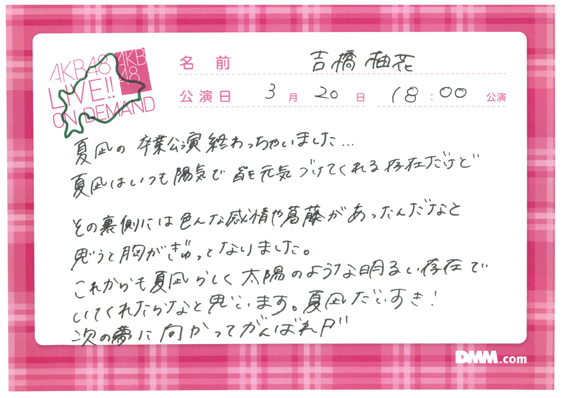 AKB48
LIVE!!
ON DEMAND
AKB
48
名前 吉橋柚花
公演日 3月20日 18:00公演
夏凪の卒業公演終わっちゃいました…
夏凪はいつも陽気で皆を元気づけてくれる存在だけど
その裏側には色んな感情や葛藤があったんだなと
思うと胸がぎゅっとなりました。
これからも夏凪らしく太陽のような明るい存在で
いてくれたらなと思います。夏凪だいすき!
次の夢に向かってがんばれP
DMM.com